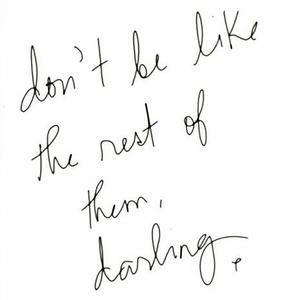 don't be like
the rest of
them,
darling.